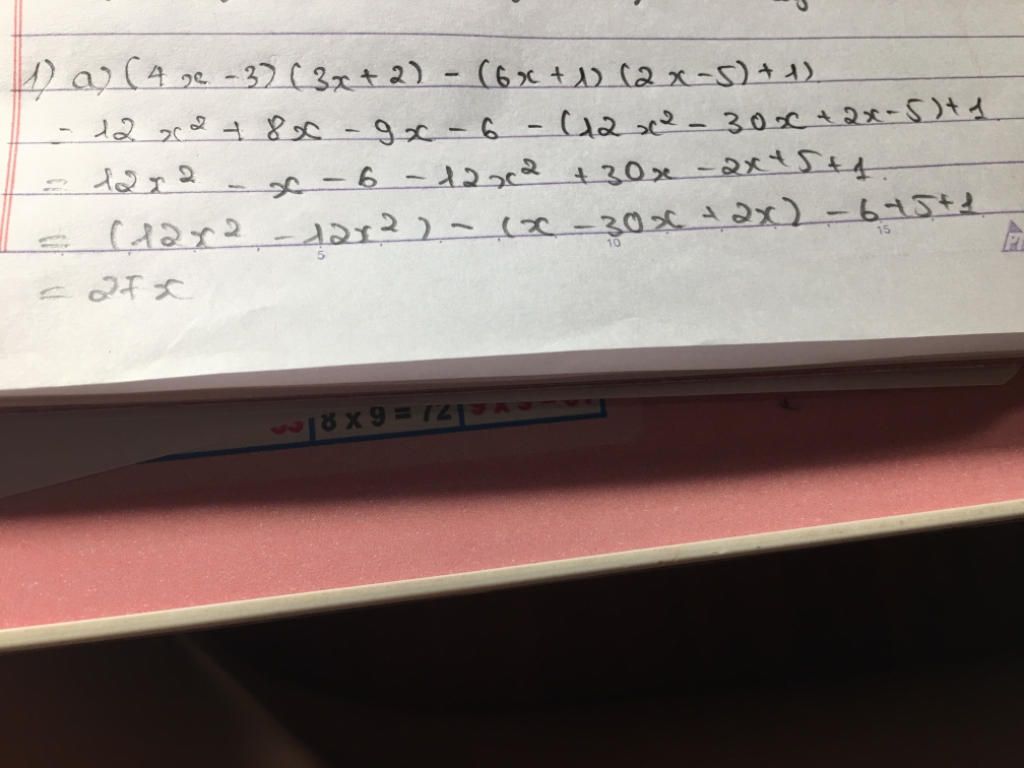 1) a) (4x - 3) (3x + 2) - (6x + 1) (2x - 5) + 1)
= 12x² + 8x - 9x - 6 - (12x² - 30x + 2x - 5) + 1
= 12x² - x - 6 - 12x² + 30x - 2x + 5 + 1.
= (12x² - 12x²) - (x - 30x + 2x) - 6 + 5 + 1
5 10 15
= 27x
8 x 9 = 72